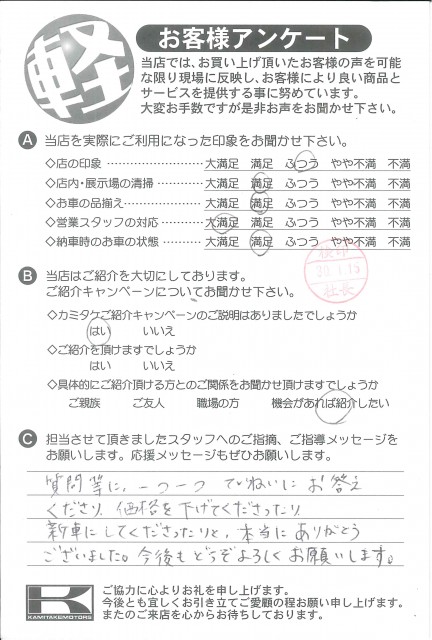 軽
お客様アンケート
当店では、お買い上げ頂いたお客様の声を可能
な限り現場に反映し、お客様により良い商品と
サービスを提供する事に努めています。
大変お手数ですが是非お声をお聞かせ下さい。
A 当店を実際にご利用になった印象をお聞かせ下さい。
◇店の印象 ‥‥‥‥‥‥‥ 大満足 満足 ふつう やや不満 不満
◇店内・展示場の清掃 ‥‥‥‥ 大満足 満足 ふつう やや不満 不満
◇お車の品揃え‥‥‥‥‥‥ 大満足 満足 ふつう やや不満 不満
◇営業スタッフの対応 ‥‥‥‥ 大満足 満足 ふつう やや不満 不満
◇納車時のお車の状態 ‥‥‥‥ 大満足 満足 ふつう やや不満 不満
B 当店はご紹介を大切にしてあります。
ご紹介キャンペーンについてお聞かせ下さい。
検印
30.1.15
社長
◇カミタケご紹介キャンペーンのご説明はありましたでしょうか
はい いいえ
◇ご紹介を頂けますでしょうか
はい いいえ
◇具体的にご紹介頂ける方とのご関係をお聞かせ頂けますでしょうか
ご親族 ご友人 職場の方 機会があれば紹介したい
C 担当させて頂きましたスタッフへのご指摘、ご指導メッセージを
お願いします。応援メッセージもぜひお願いします。
質問等に、一つ一つ ていねいに お答え
くださり、価格を下げてくださったり
新車にしてくださったりと、本当に ありがとう
ございました。今後も どうぞよろしく お願いします。
KAMITAKEMOTORS
ご協力に心よりお礼を申し上げます。
今後とも宜しくお引き立てご愛顧の程お願い申し上げます。
またのご来店を心からお待ちしております。